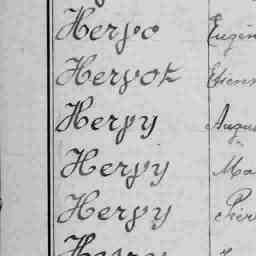 Hervo Eugèn
Hervot Etienn
Hervy Augus
Hervy Ma
Hervy Pier